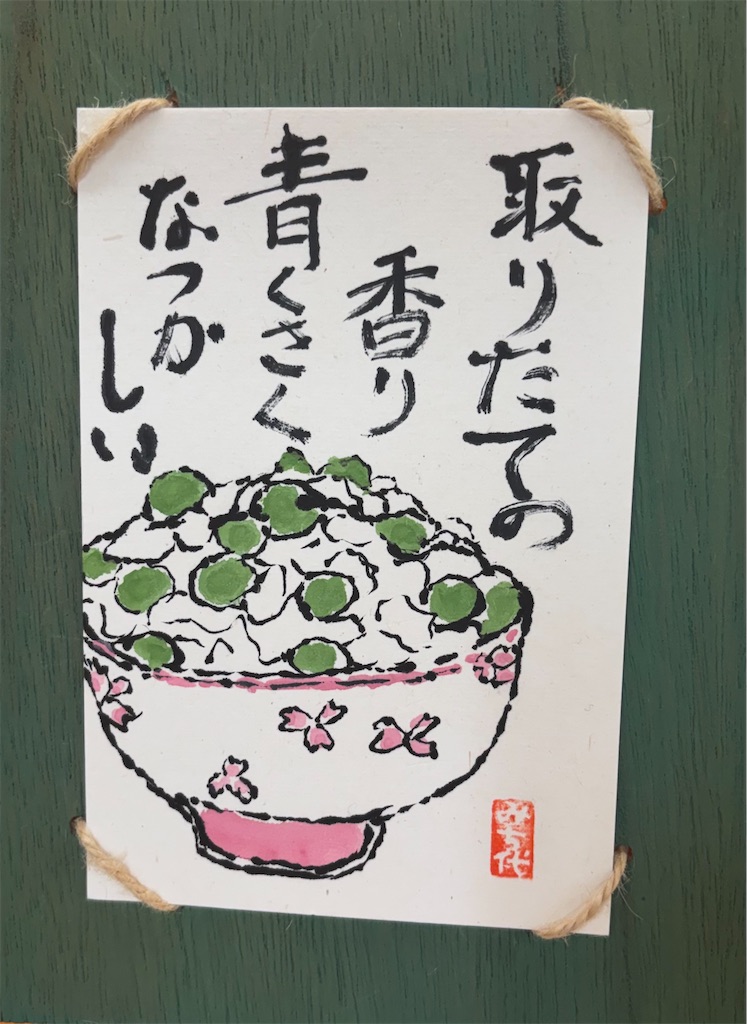 取りたての
香り
青くさく
なつか
しい
みち代